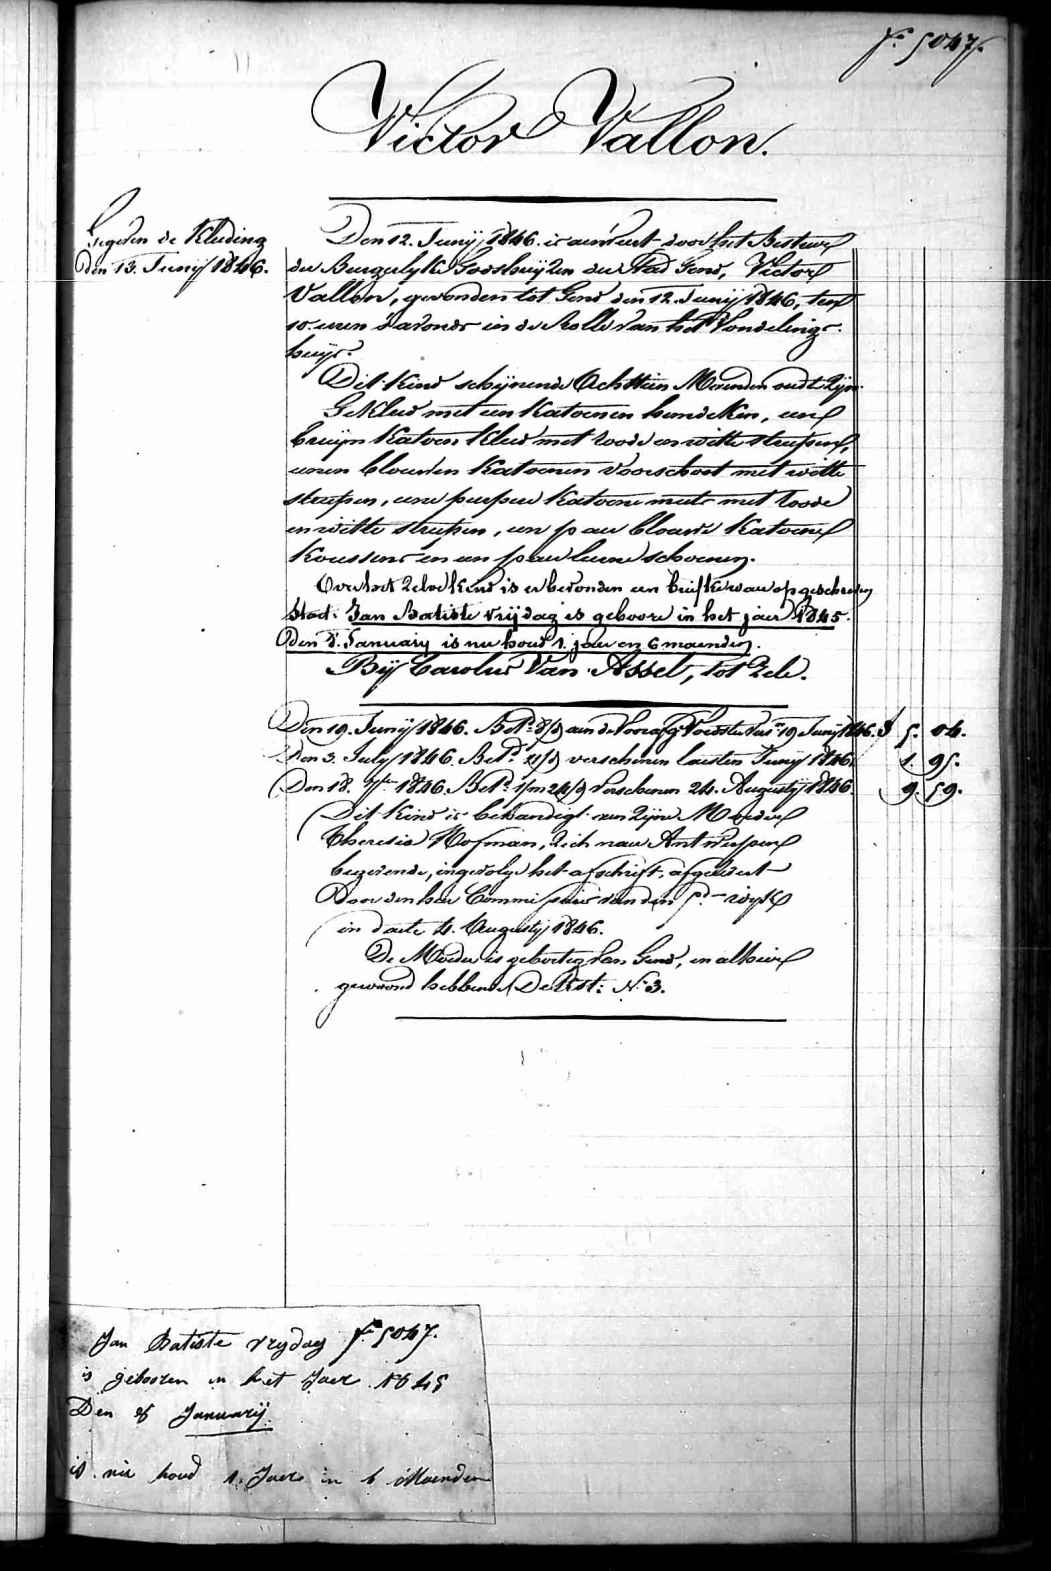 f.º 5047.
Victor Vallon.
Gegeven de Kleeding
den 13. Junij 1846.
Den 12. Junij 1846. is aenveert door het Bestuur
der Burgerlyke Godshuyzen der Stad Gend, Victor
Vallon, gevonden tot Gend den 12. Junij 1846, ten
10. uren s'avonds in de Rolle van het Vondelings-
huys.
Dit Kind schynende Achttien Maenden oud te zyn.
Gekleed met een Katoenen hemdeken, een
bruyn Katoen Kleed met roode en witte streepen,
eenen blouwen Katoenen voorschoot met witte
streepen, eene purpere Katoene muts met roode
en witte streepen, een paer blouwe Katoene
Koussens en een paer leere schoenen.
Over het zelve kind is er bevonden een briefke waer op geschreven
staet: Jan Batiste vrijdag is geboore in het jaer 1845.
den 8. January is nu houd 1. jaer en 6 maenden.
Bij Carolus Van Assel, tot Zele.
Den 19. Junij 1846. Bet.d aen de Voorafg. Voedster tus 19 Junij 1846. f 5. 04.
Den 3. July 1846. Bet.d verschenen laesten Junij 1846. 1. 95.
Den 18. 1846. Bet.d verschenen 24. Augustij 1846. 9. 59.
Dit Kind is behandigt aen zyne Moeder
Theresia Hofman, zich naer Antwerpen
begevende, ingevolge het afschrift, afgelevert
Door den heer Commissaris van den 5.de wyk
in daete 4. Augustij 1846.
De Moeder is geboortig van Gend, en alhier
gewoond hebbende N.º 3.
Jan Batiste vrydag f.º 5047.
is gebooren in het Jaer 1845
Den 8 Januarij
is nu houd 1. Jaer in 6 Maenden